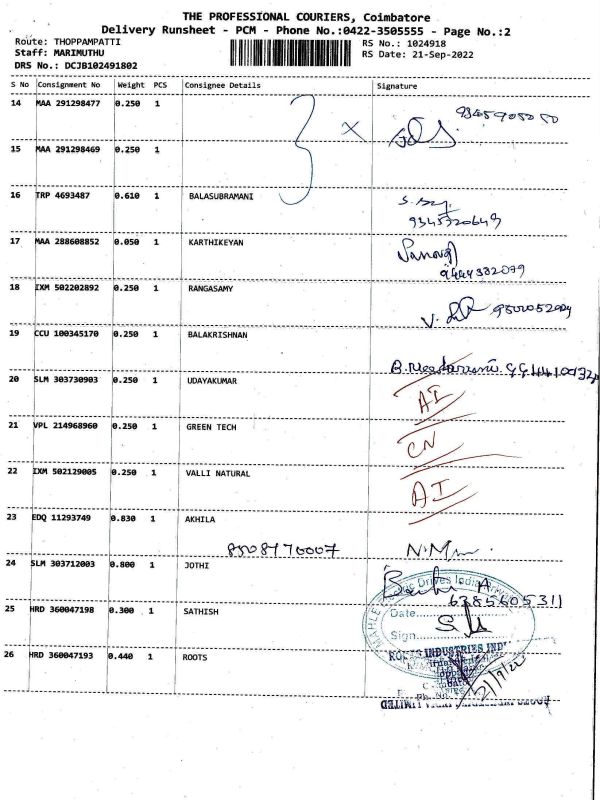 THE PROFESSIONAL COURIERS, Coimbatore
Delivery Runsheet - PCM - Phone No.:0422-3505555 - Page No.:2
Route: THOPPAMPATTI
Staff: MARIMUTHU
DRS No.: DCJB102491802
RS No.: 1024918
RS Date: 21-Sep-2022
S No Consignment No Weight PCS Consignee Details Signature
14 MAA 291298477 0.250 1
15 MAA 291298469 0.250 1
16 TRP 4693487 0.610 1 BALASUBRAMANI
17 MAA 288608852 0.050 1 KARTHIKEYAN
9444332079
18 IXM 502202892 0.250 1 RANGASAMY
19 CCU 100345170 0.250 1 BALAKRISHNAN
20 SLM 303730903 0.250 1 UDAYAKUMAR
AI
21 VPL 214968960 0.250 1 GREEN TECH
CN
22 IXM 502129005 0.250 1 VALLI NATURAL
AI
23 EDQ 11293749 0.830 1 AKHILA
8508470007
24 SLM 303712003 0.800 1 JOTHI
6385605311
25 HRD 360047198 0.300 1 SATHISH
Date
Sign
26 HRD 360047193 0.440 1 ROOTS
21/9/22